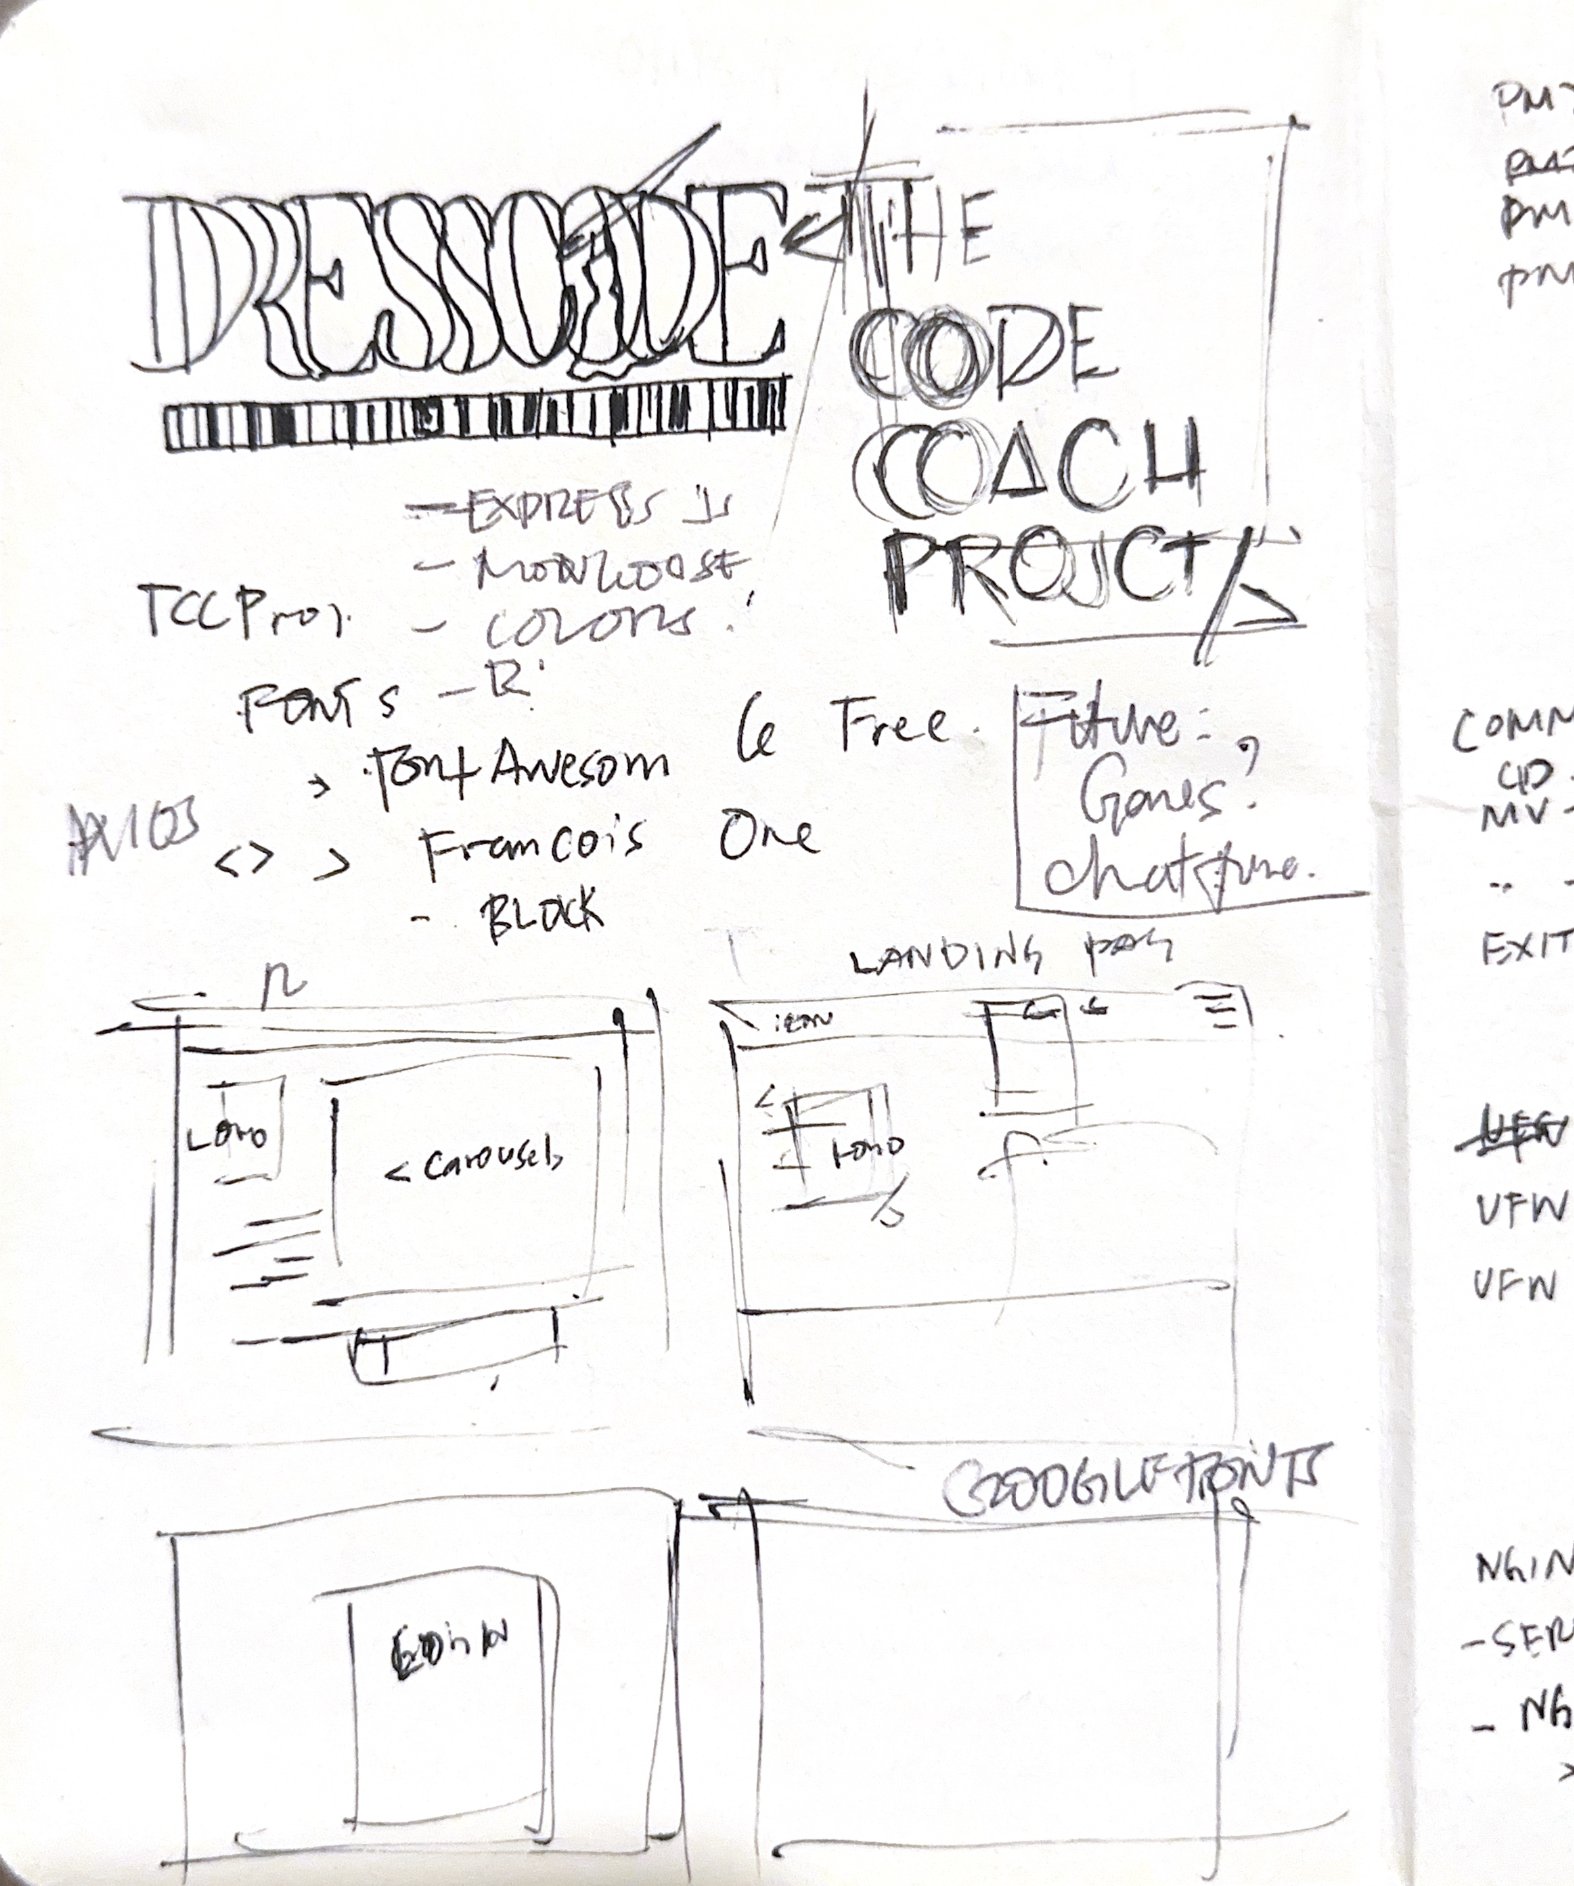 DRESSCODE
<THE
CODE
COACH
PROJCT/>
- EXPRESS JS
- MONGOOSE
TCCProj. - COLORS!
FONTS - R
> Font Awesom 6 Free.
<> > Francois One
- BLOCK
Future:
Games?
LANDING PAG
LOGO
< Carousel>
icon
LOGO
GOOGLE FONTS
PM
PM
PM
COMM
CD
MV -
.. -
EXIT
UFW
UFW
UFW
NGIN
- SER
- NG
>